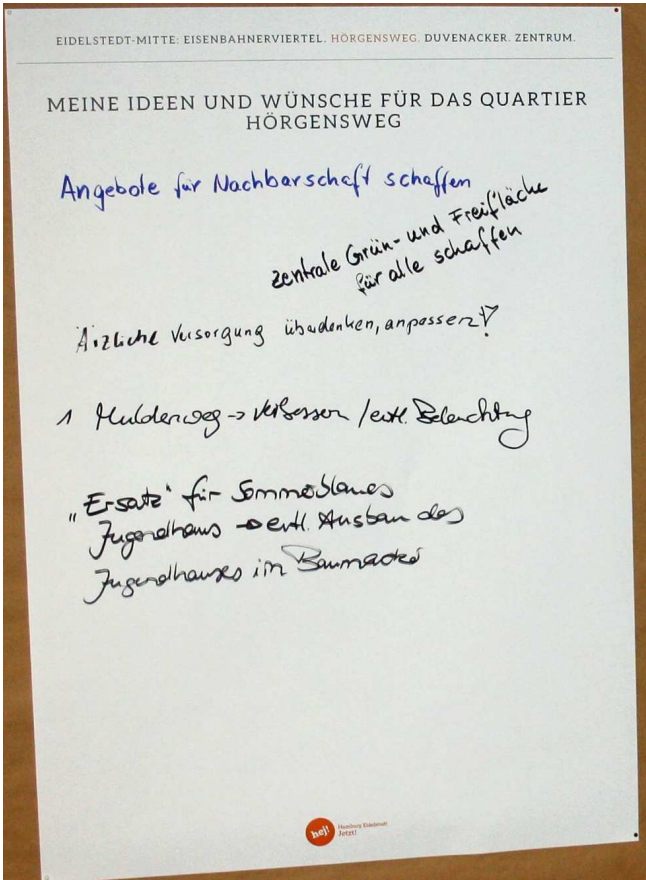 EIDELSTEDT-MITTE: EISENBAHNERVIERTEL. HÖRGENSWEG. DUVENACKER. ZENTRUM.
MEINE IDEEN UND WÜNSCHE FÜR DAS QUARTIER
HÖRGENSWEG
Angebote für Nachbarschaft schaffen
zentrale Grün- und Freifläche
für alle schaffen
Ärzliche Versorgung überdenken, anpassen!
1 Muldenweg → verbessern / evtl. Beleuchtung
"Ersatz" für Sommerblaues
Jugendhaus → evtl. Ausbau des
Jugendhauses im Baumacker
hej!
Hamburg Eidelstedt
Jetzt!